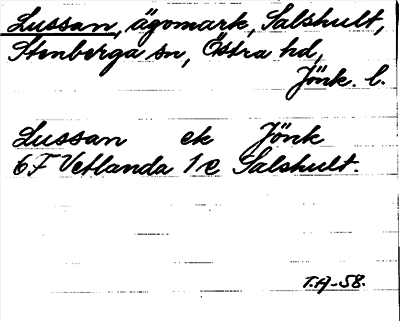 Lussan, ägomark, Salshult,
Stenberga sn, Östra hd,
Jönk. l.
Lussan ek Jönk
6F Vetlanda 1e Salshult.
T.A-58.